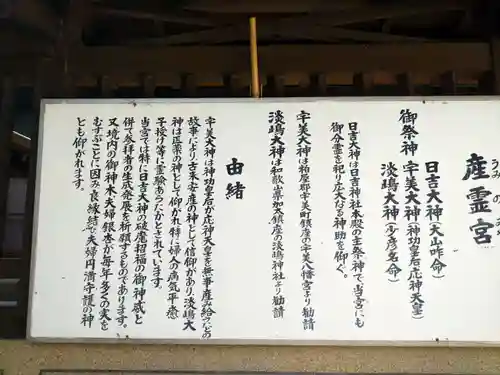 産霊宮
うみの
御祭神
日吉大神(大山咋命)
宇美大神(神功皇后応神天皇)
淡嶋大神(少彦名命)
日吉大神は日吉神社本殿の主祭神で当宮にも
御分霊を祀り広大なる神助を仰ぐ。
宇美大神は粕屋郡宇美町鎮座の宇美八幡宮より勧請
淡嶋大神は和歌山県加太鎮座の淡嶋神社より勧請
由緒
宇美大神は神功皇后が応神天皇を無事産み給うたの
故事により古来安産の神として信仰があり淡嶋大
神は医薬の神として仰がれ特に婦人の病気平癒
子授け等に霊験あらたかとされています。
当宮では特に日吉大神の破魔招福の御神威と
併て参拝者の生成発展を祈願するものであります。
又境内の御神木夫婦銀杏が毎年多くの実を
むすぶことに因み良縁結で夫婦円満守護の神
とも仰がれます。